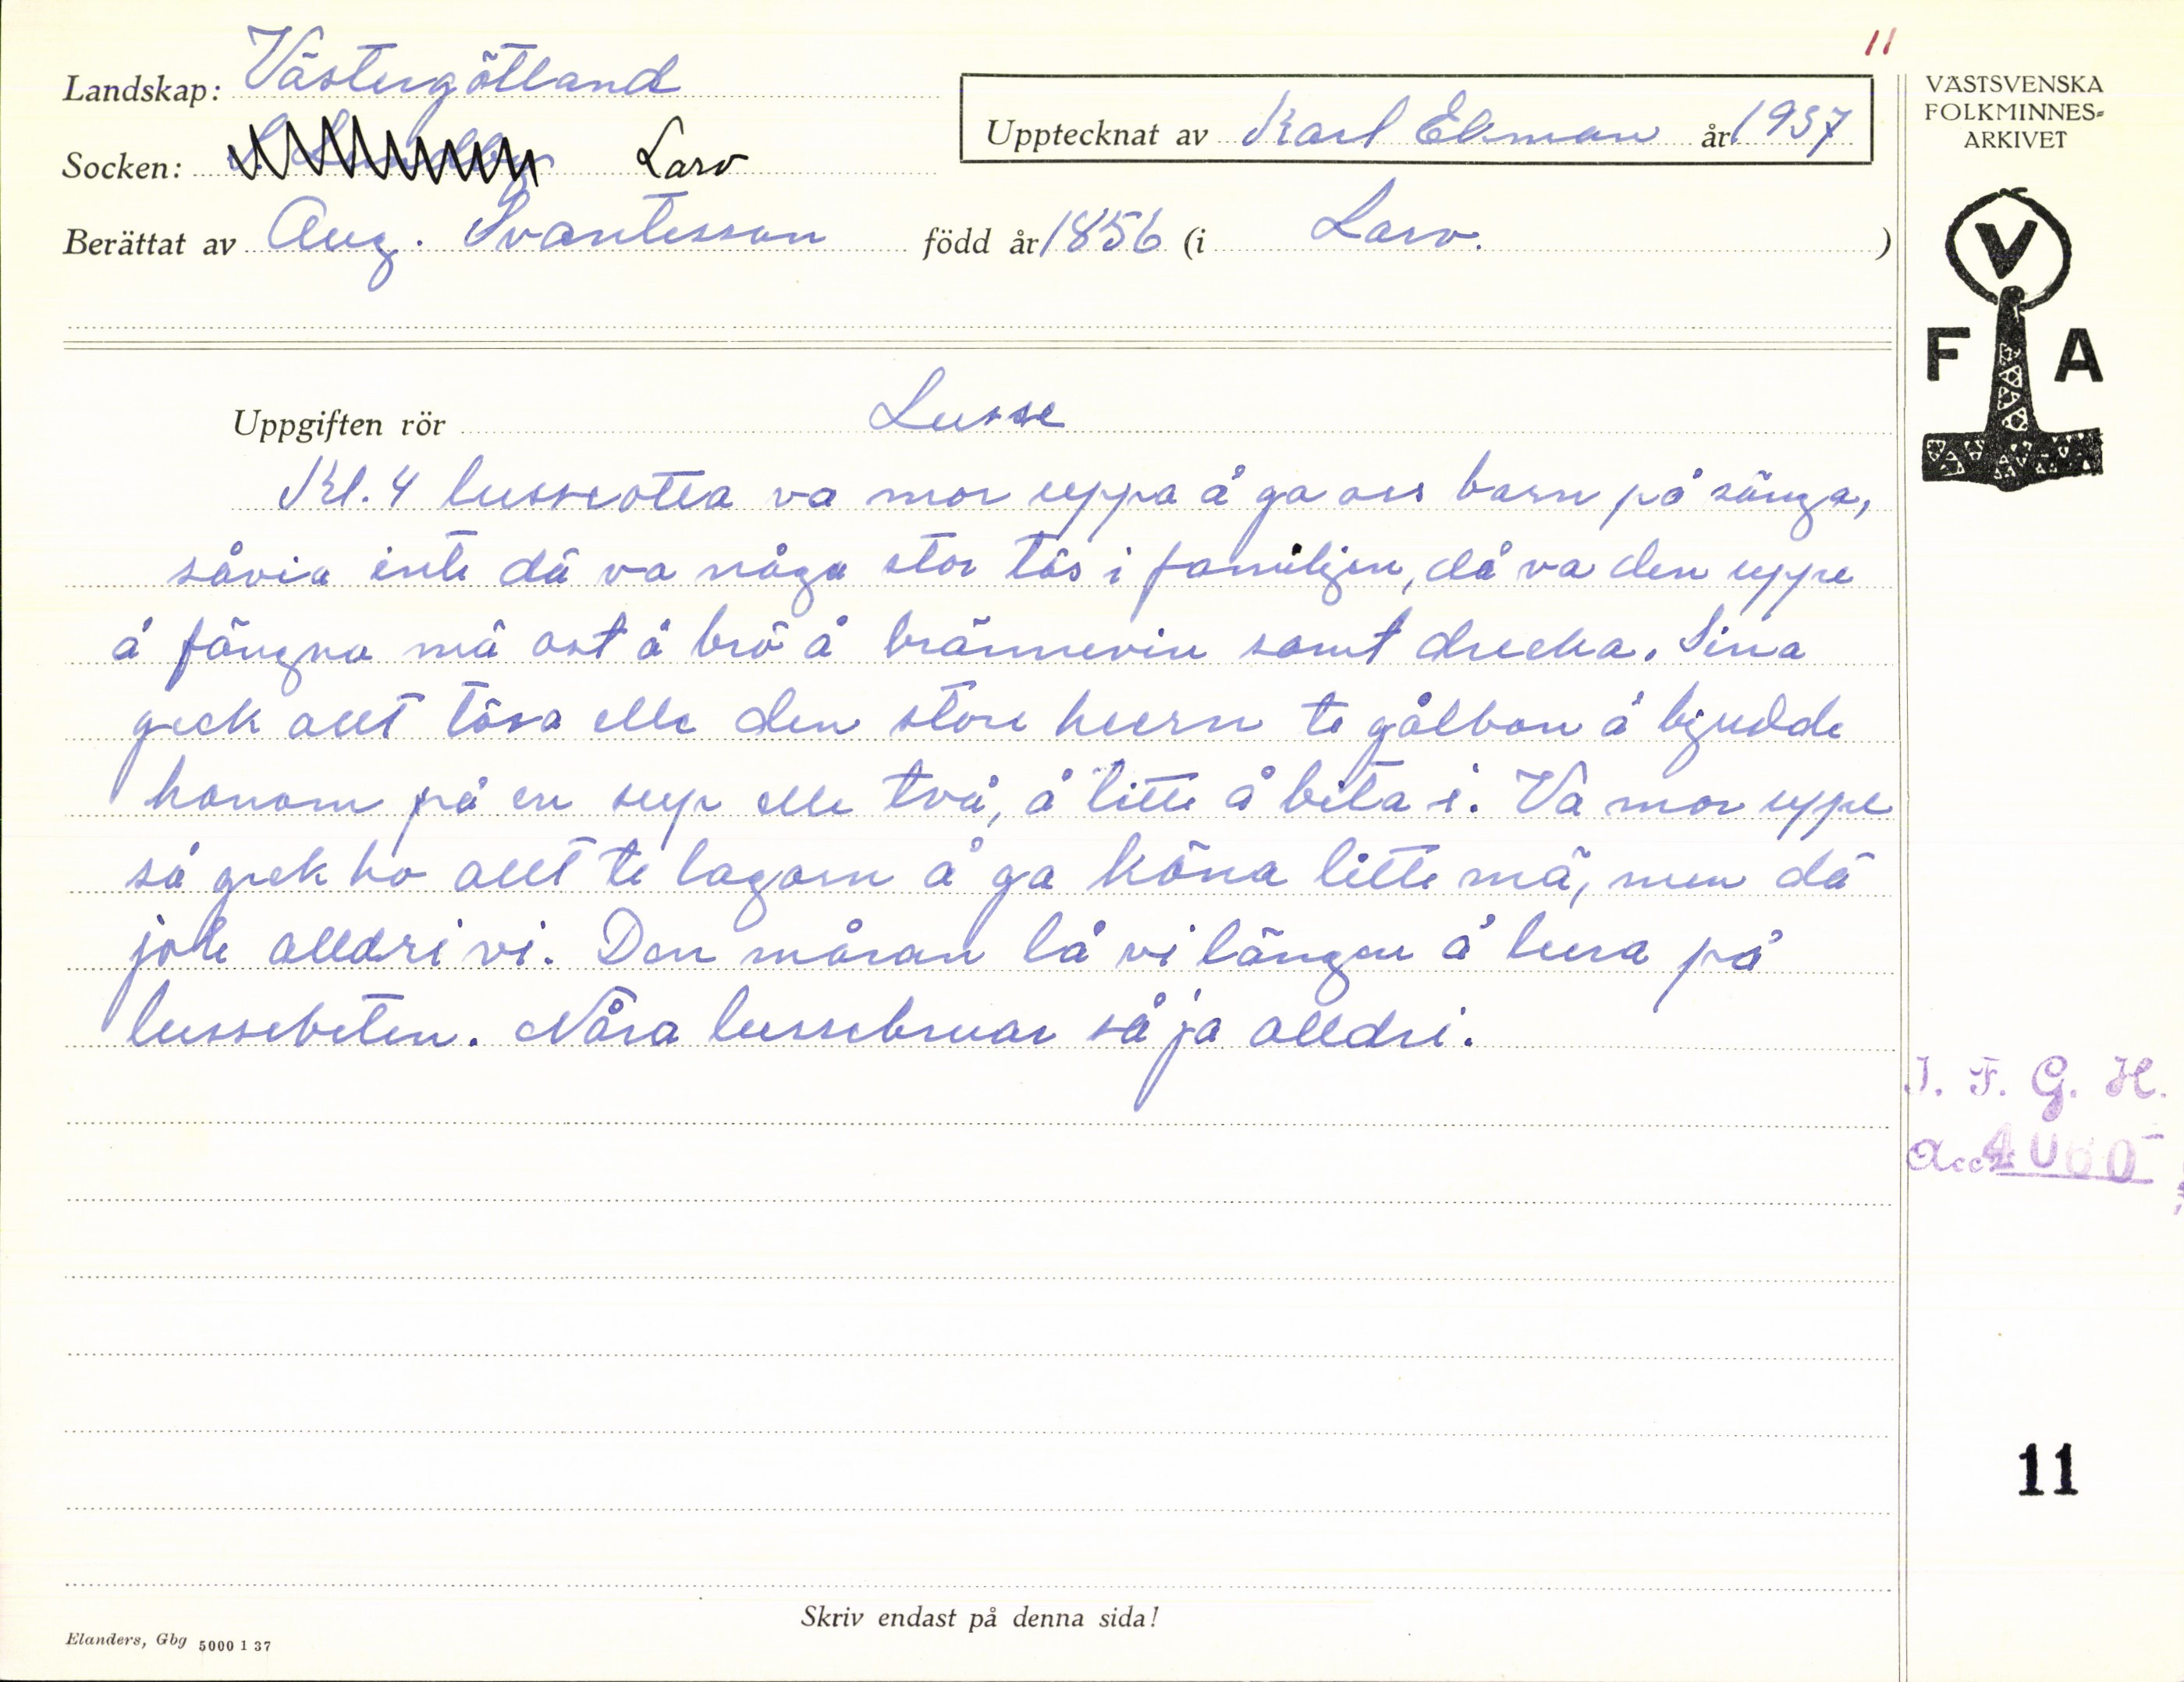 11
Landskap: Västergötland
VÄSTSVENSKA
FOLKMINNES-
ARKIVET
Upptecknat av Karl Ekman år 1937
Socken: Larv
Berättat av Aug. Svantesson född år 1856 (i Larv. )
V
F A
Uppgiften rör Lusse
Kl. 4 lusseotta va mor uppa å ga oss barn på sänga,
såvia inte dä va någu stor tös i familjen, då va den uppe
å fängna mä ost å brö å brännevin samt drecka. Sina
geck allt tösa elle den store heern te gålbon å bjudde
honom på en sup elle två, å litte å bita i. Va mor uppe
så geck ho allt te lagorn å ga köna litte mä, men dä
jole alldri vi. Den måran lå vi längen å lura på
lussebeten. Nåra lussebruar så ja alldri.
I. F. G. H.
Acc.
11
Skriv endast på denna sida!
Elanders, Gbg 5000 1 37